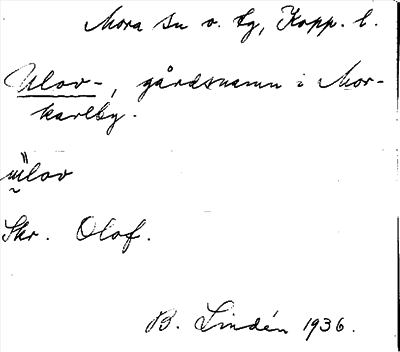 Mora sn o. tg, Kopp. l.
Ulov-, gårdsnamn i Mor-
karlby.
ulov
Skr. Olof.
B. Lindén 1936.